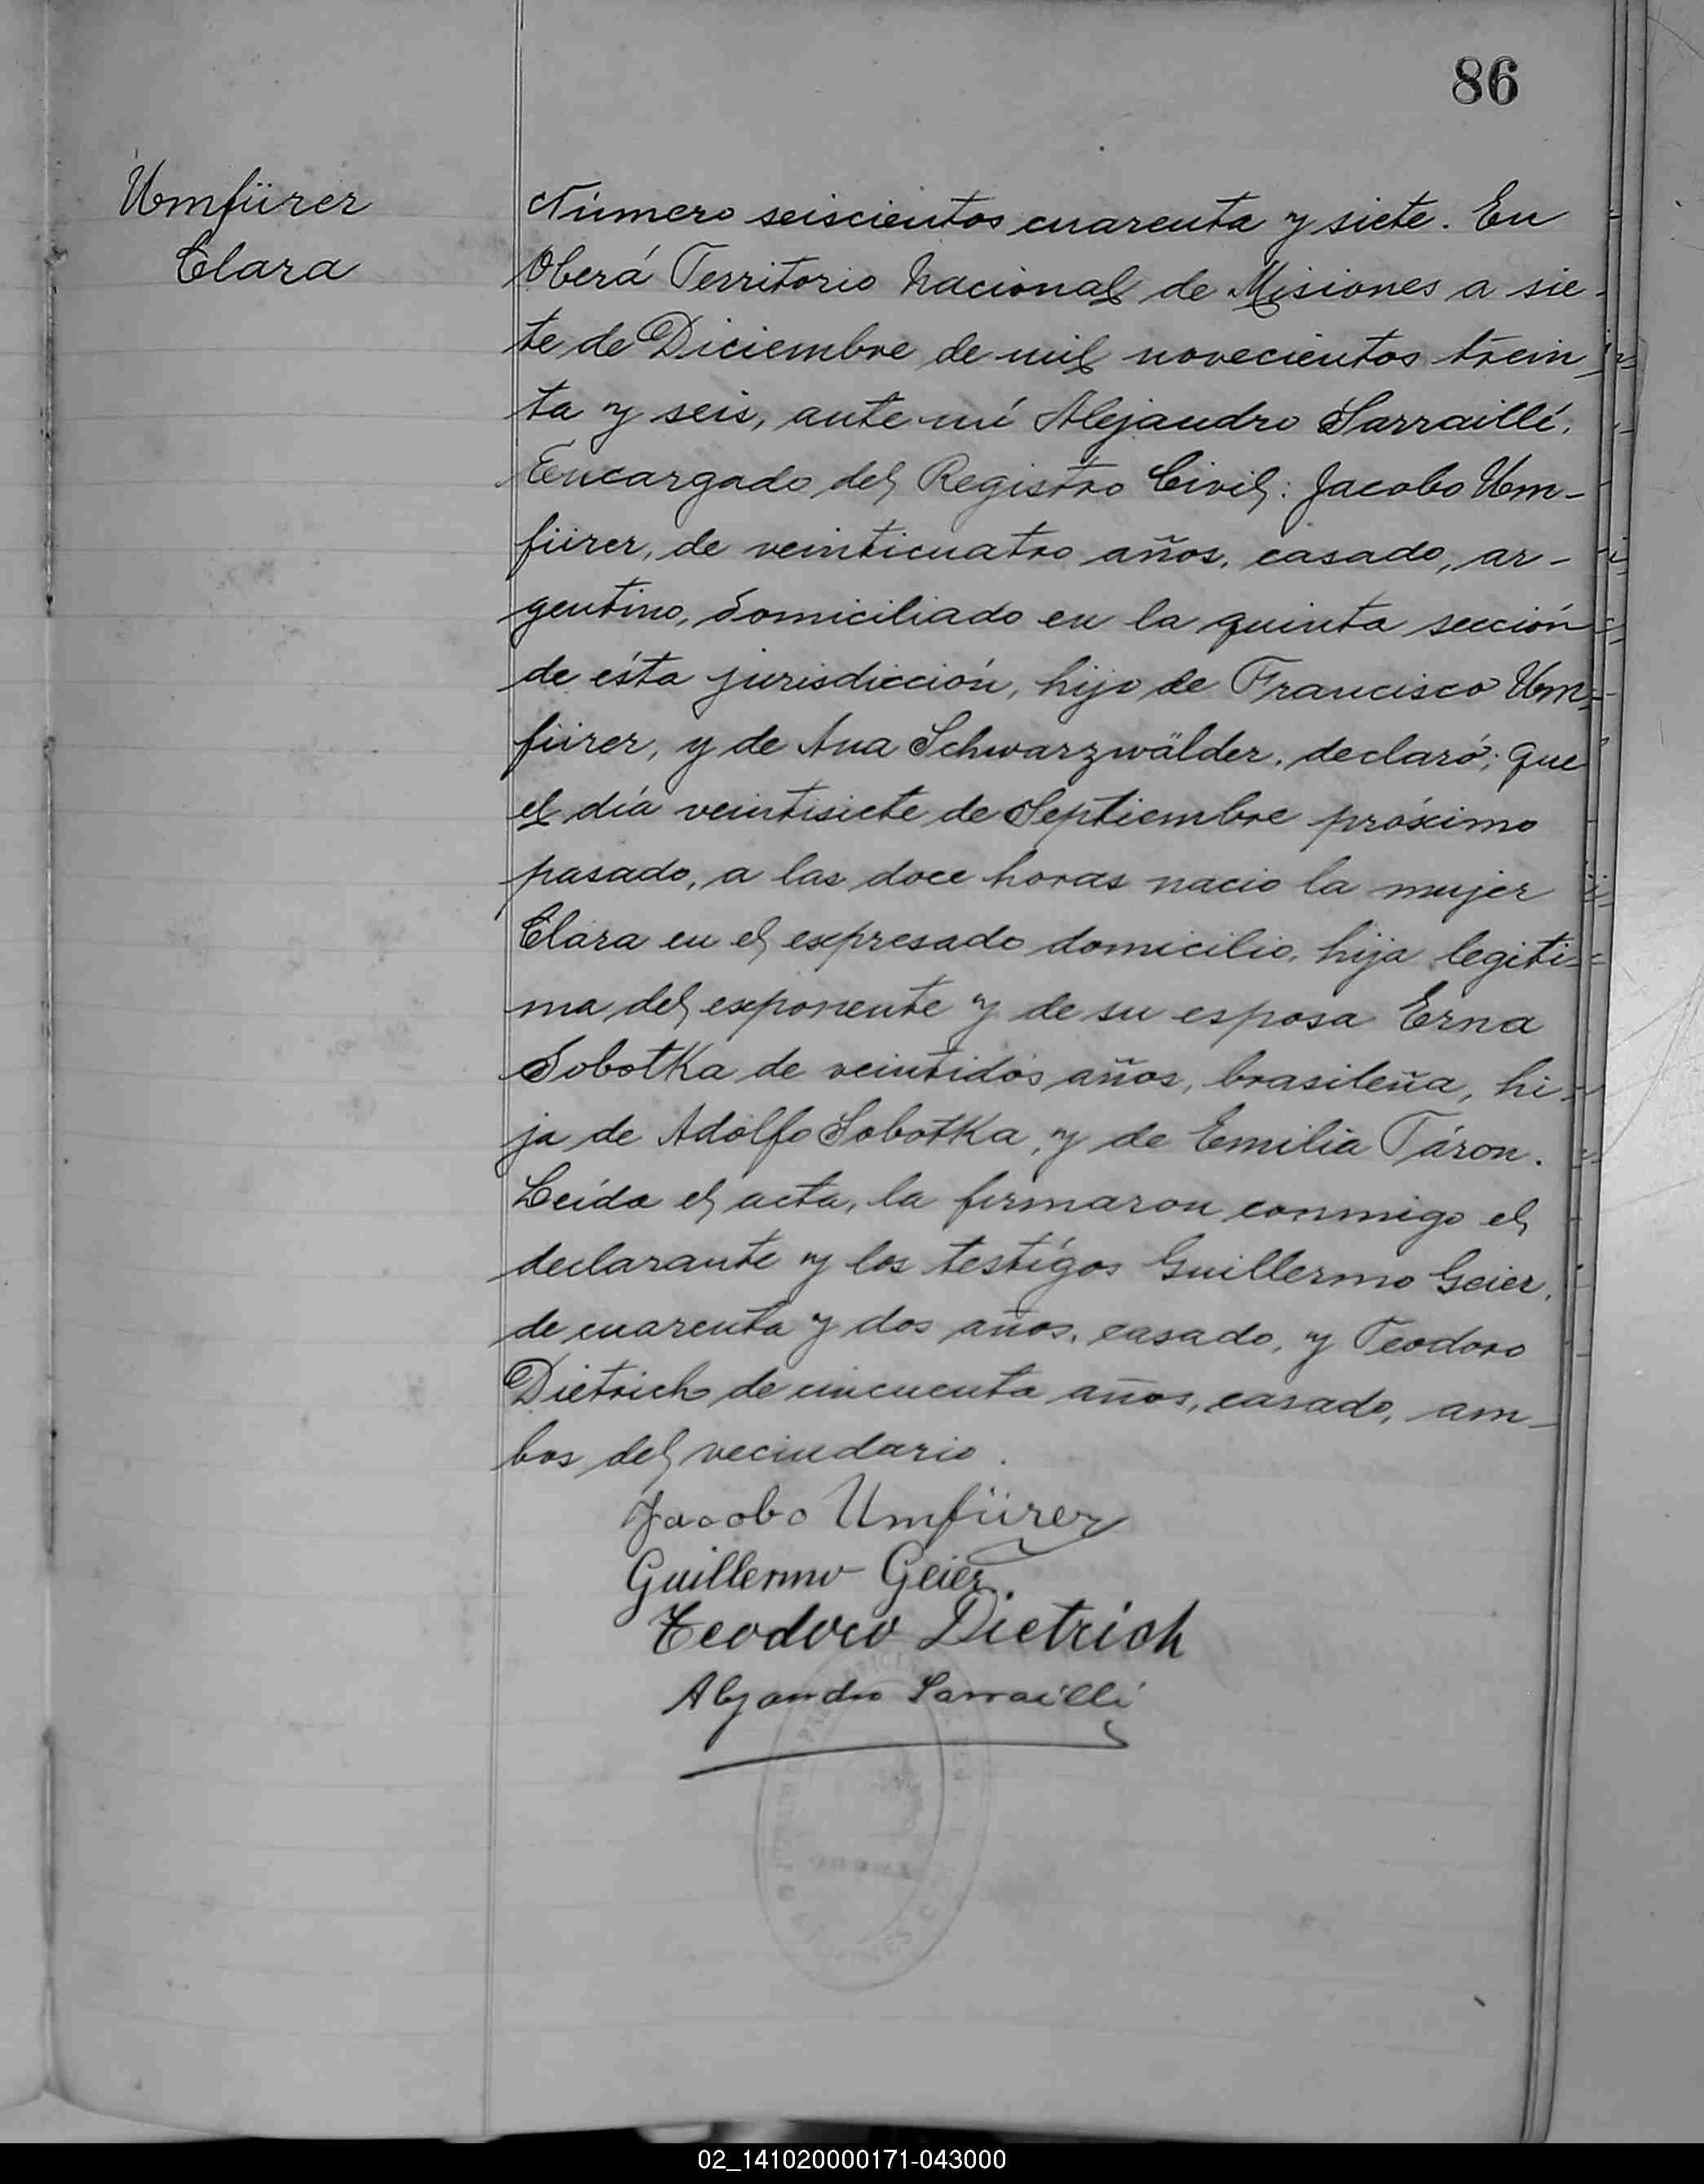 86
Umfürer
Clara
Número seiscientos cuarenta y siete. En
Oberá Territorio Nacional de Misiones a sie-
te de Diciembre de mil novecientos trein-
ta y seis, ante mí Alejandro Sarraillí,
Encargado del Registro Civil: Jacobo Um-
fürer, de veinticuatro años, casado, ar-
gentino, domiciliado en la quinta sección
de ésta jurisdicción, hijo de Francisco Um-
fürer, y de Ana Schwarzwälder, declaró; que
el día veintisiete de Septiembre próximo
pasado, a las doce horas nacio la mujer
Clara en el expresado domicilio, hija legiti-
ma del exponente y de su esposa Erna
Sobotka de veintidós años, brasileña, hi-
ja de Adolfo Sobotka, y de Emilia Táron.
Leída el acta, la firmaron conmigo el
declarante y los testigos Guillermo Geier,
de cuarenta y dos años, casado, y Teodoro
Dietrich de cincuenta años, casado, am-
bos del vecindario.
Jacobo Umfürer
Guillermo Geier.
Teodoro Dietrich
Alejandro Sarraillí
02_141020000171-043000